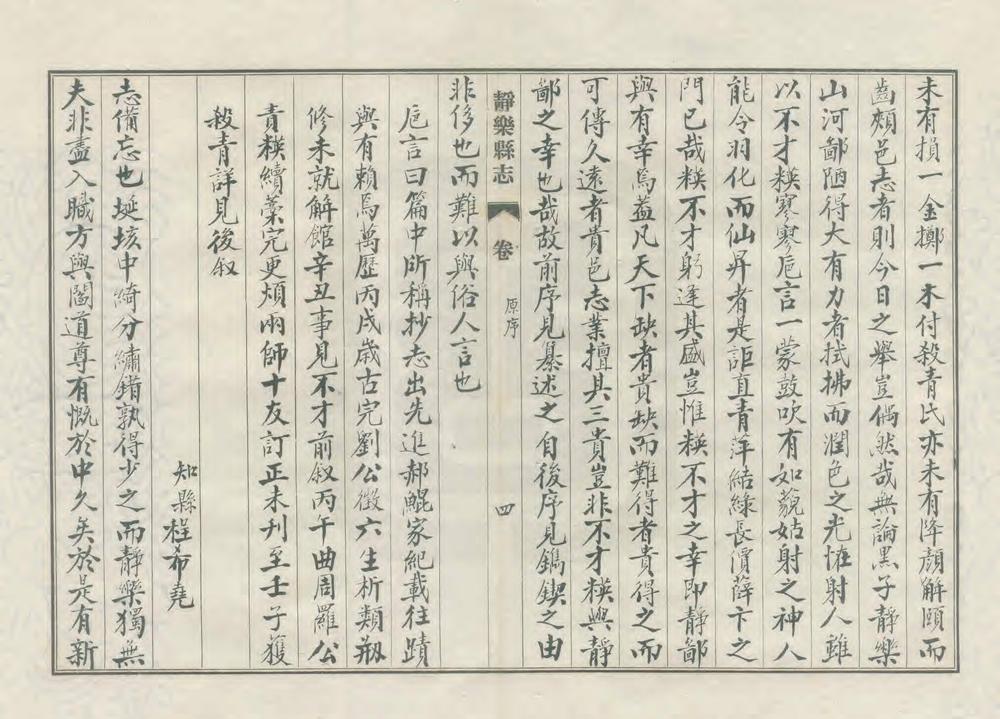 未有損一金擲一木付殺青氏亦未有降顏解頤而
齒頰邑志者則今日之舉豈偶然哉無論黑子靜樂
山河鄙陋得大有力者拭拂而潤色之光怪射人雖
以不才模寥寥巵言一蒙鼓吹有如藐姑射之神人
能令羽化而仙昇者是詎直青萍結綠長價薛卞之
門已哉模不才躬逢其盛豈惟模不才之幸即靜鄙
與有幸焉蓋凡天下缺者貴缺而難得者貴得之而
可傳久遠者貴邑志業擅其三貴豈非不才模與靜
鄙之幸也哉故前序見纂述之自後序見鐫鍥之由
非侈也而難以與俗人言也
巵言曰篇中所稱抄志出先進郝鯤家紀載往蹟
與有賴焉萬歷丙戌歲古完劉公徵六生析類剏
修未就解館辛丑事見不才前叙丙午曲周羅公
責模續藁完更煩兩師十友訂正未刊至壬子獲
殺青詳見後叙
知縣程希堯
志備忘也埏垓中綺分繡錯孰得少之而靜樂獨無
夫非盡入職方與閽道尊有慨於中久矣於是有新
靜樂縣志 卷 原序 四